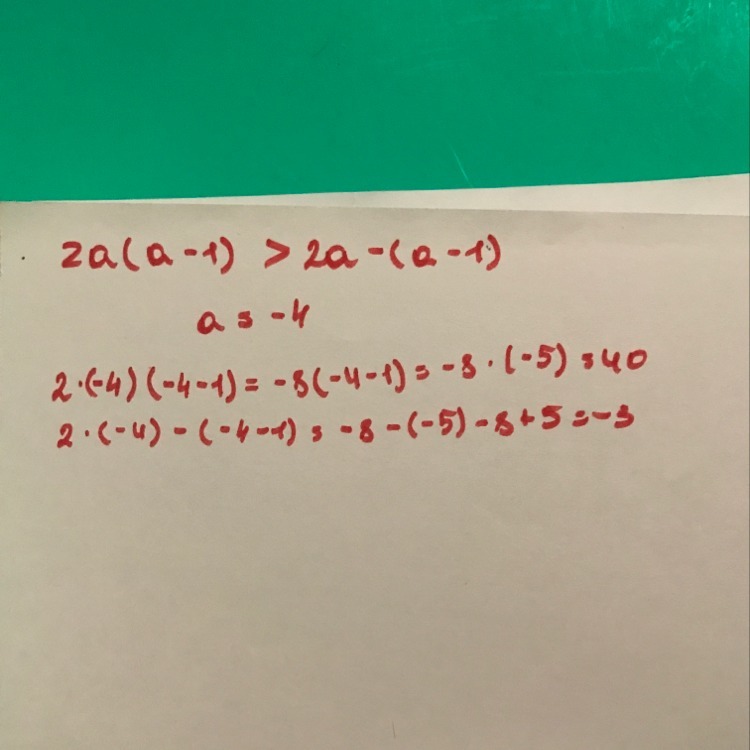 2a(a-1) > 2a-(a-1)
a = -4
2·(-4)(-4-1) = -8(-4-1) = -8·(-5) = 40
2·(-4)-(-4-1) = -8-(-5)-8+5 = -3